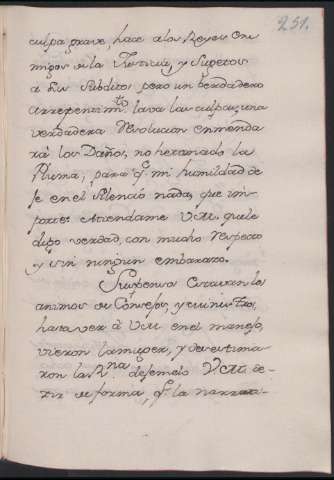 251.
culpa grave, hace a los Reyes en
migos de la Justicia, y Sugetos
a Sus Subditos, pero un berdadero
arrepentim.to laba las culpas, una
verdadera Resolucion enmenda
rà los Daños, no he tomado la
Pluma, para q.e mi humildad de
je en el Silencio nada, que im
porte: Atiendame V.M. que le
digo verdad, con mucho Respecto
y sin ningun embarazo.
Suspensos Estavan los
animos de
hasta ver à V.M. en el manejo,
vieron la muger, y de
ron las R.nas de V.M. de
zir de forma, q.e la narra